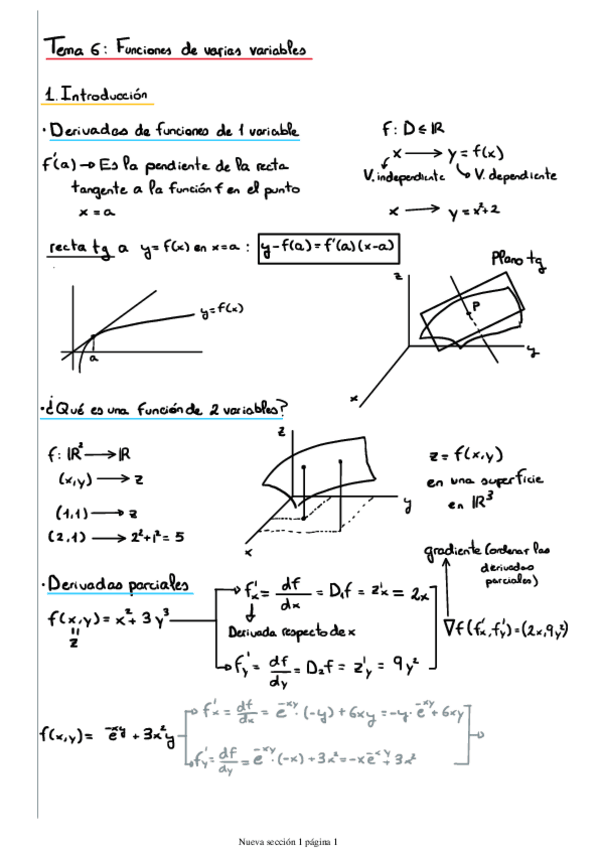 Tema 6: Funciones de varias variables
1. Introducción
· Derivadas de funciones de 1 variable
f: D ∈ IR
f'(a) → Es la pendiente de la recta
tangente a la función f en el punto
x = a
x → y = f(x)
V. independiente V. dependiente
x → y = x²+2
recta tg a y = f(x) en x=a : y-f(a) = f'(a)(x-a)
Plano tg
z
P
y
x
y=f(x)
a
· ¿Qué es una función de 2 variables?
f: IR² → IR
(x,y) → z
(1,1) → z
(2,1) → 2²+1² = 5
z
y
x
z = f(x,y)
en una superficie
en IR³
gradiente (ordenar las
derivadas
parciales)
· Derivadas parciales
f(x,y) = x² + 3y³
=
z
f'x = df/dx = D₁f = z'x = 2x
Derivada respecto de x
f'y = df/dy = D₂f = z'y = 9y²
∇f(f'x, f'y) = (2x, 9y²)
f(x,y) = e^-xy + 3x²y
f'x = df/dx = e^-xy · (-y) + 6xy = -y · e^-xy + 6xy
f'y = df/dy = e^-xy · (-x) + 3x² = -x e^-xy + 3x²
Nueva sección 1 página 1